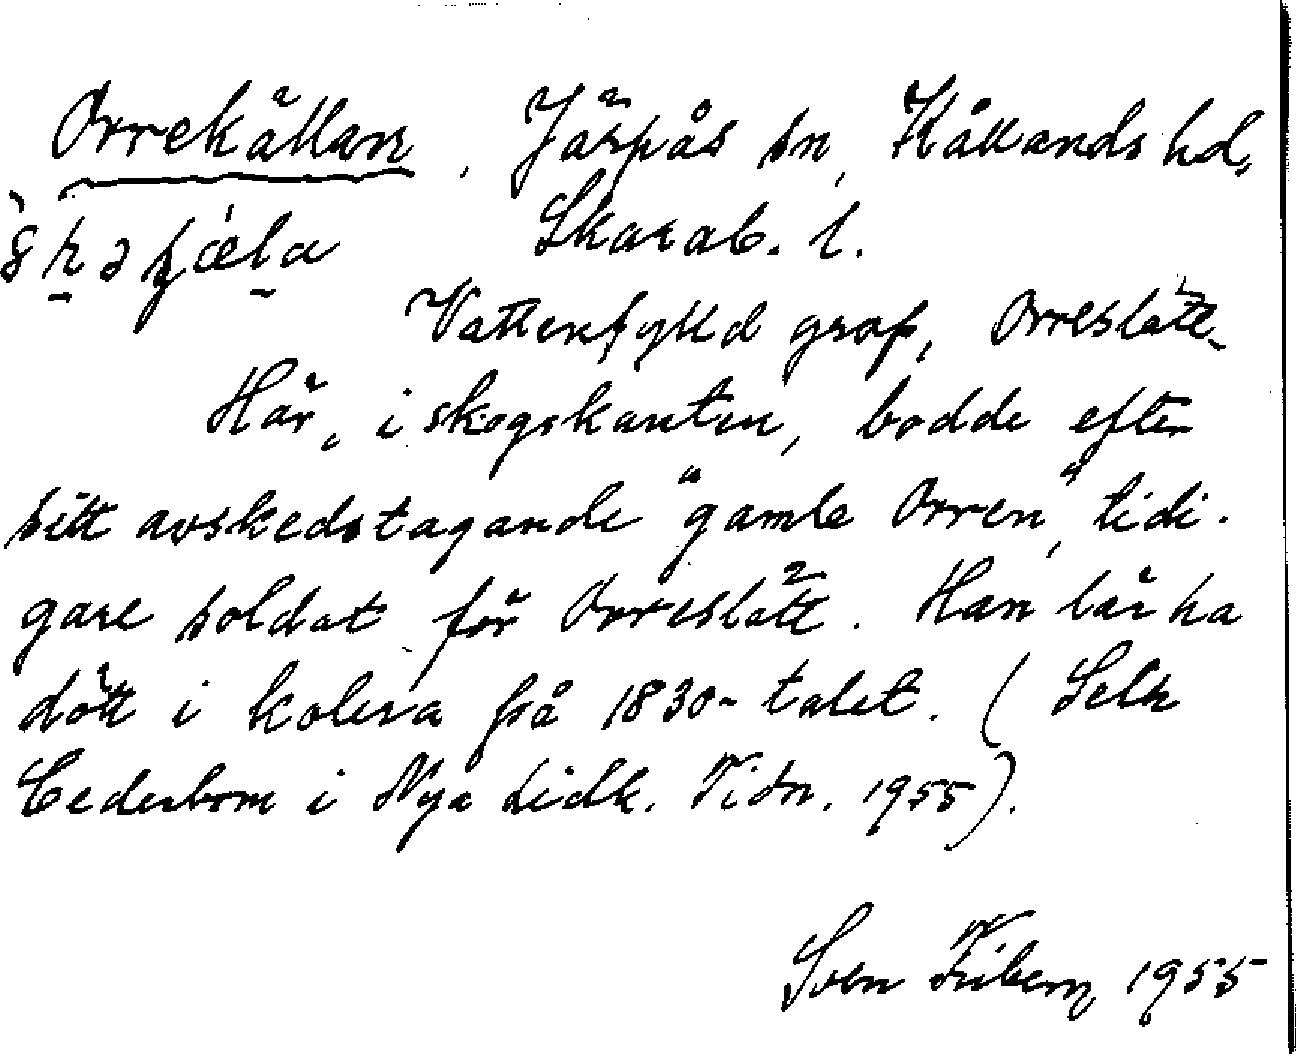 Orrekällan, Järpås sn, Kållands hd,
Skarab. l.
Vattenfylld grop, Orreslätt.
Här, i skogskanten, bodde efter
sitt avskedstagande "gamle Orren", tidi-
gare soldat för Orreslätt. Han lär ha
dött i kolera på 1830-talet. (Seth
Cederbom i Nya Lidk. Tidn. 1955).
Sven Friberg 1955